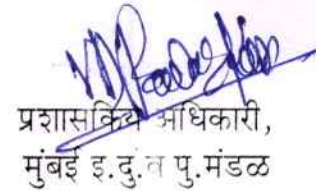 प्रशासकिय अधिकारी,
मुंबई इ.दु.व पु.मंडळ